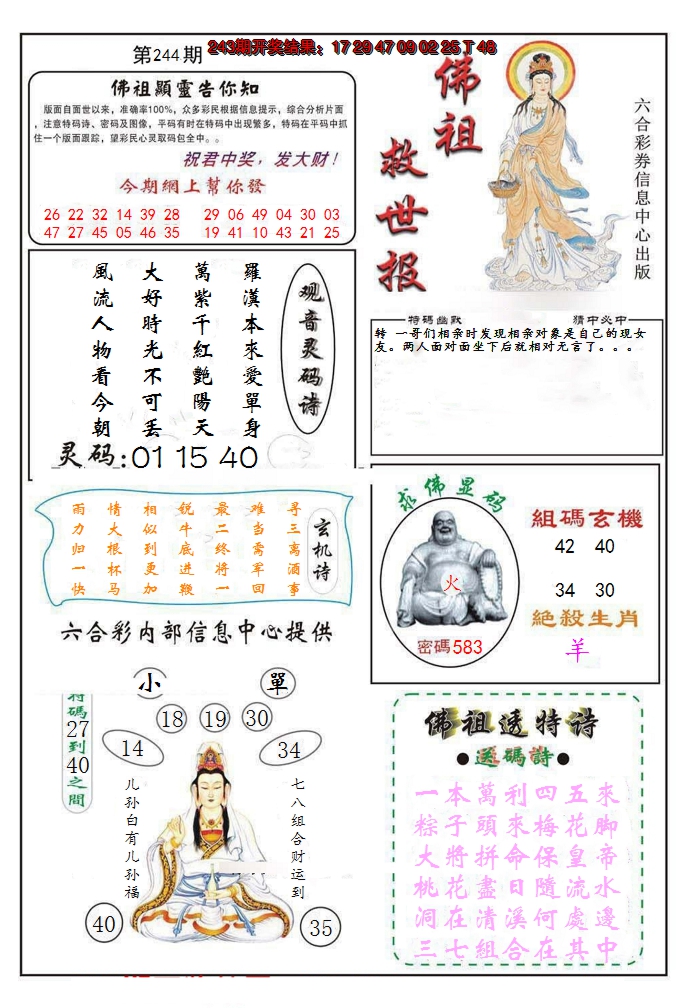 第244期
243期开奖结果：17 29 47 09 02 25 T 48
佛祖顯靈告你知
版面自面世以来，准确率100%，众多彩民根据信息提示，综合分析片面
，注意特码诗、密码及图像，平码有时在特码中出现繁多，特码在平码中抓
住一个版面跟踪，望彩民心灵取码包全中。。
祝君中奖，发大财！
今期網上幫你發
26 22 32 14 39 28 29 06 49 04 30 03
47 27 45 05 46 35 19 41 10 43 21 25
佛祖
救世报
六合彩券信息中心出版
观音灵码诗
羅漢本來愛單身
萬紫千紅艷陽天
大好時光不可丟
風流人物看今朝
灵码:01 15 40
特碼幽默
猜中必中
转 一哥们相亲时发现相亲对象是自己的现女
友。两人面对面坐下后就相对无言了。。。
玄机诗
寻三离酒事
难当需军回
最二终将一
锐牛底进鞭
相似到更加
情大根杯马
雨力归一快
六合彩内部信息中心提供
求佛显码
火
密碼583
組碼玄機
42 40
34 30
絕殺生肖
羊
小
單
特碼27到40之間
18 19 30
14
34
儿孙自有儿孙福
七八组合财运到
40
35
佛祖透特诗
●送碼詩●
一本萬利四五來
粽子頭來梅花脚
大將拼命保皇帝
桃花盡日隨流水
洞在清溪何處邊
三七組合在其中